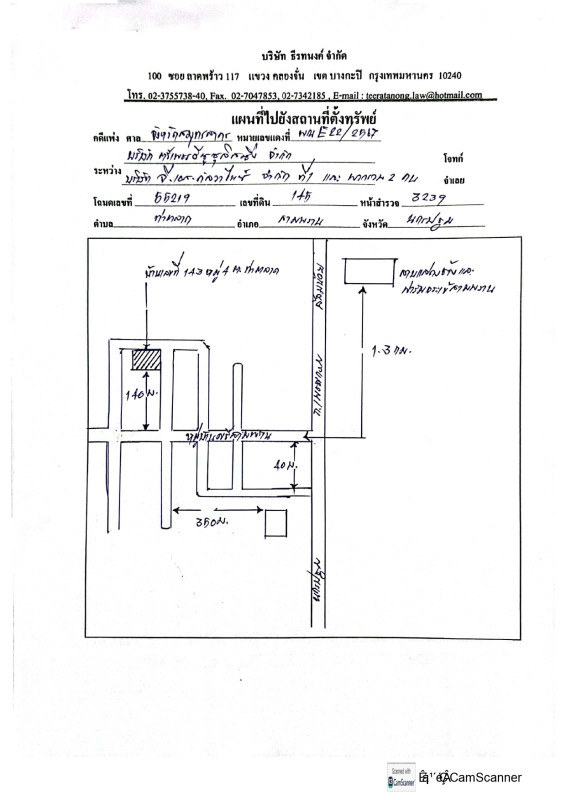 บริษัท ธีรทนงค์ จำกัด
100 ซอย ลาดพร้าว 117 แขวง คลองจั่น เขต บางกะปิ กรุงเทพมหานคร 10240
โทร. 02-3755738-40, Fax. 02-7047853, 02-7342185 , E-mail : teeratanong.law@hotmail.com
แผนที่ไปยังสถานที่ตั้งทรัพย์
คดีแพ่ง ศาล จังหวัดสมุทรสาคร หมายเลขแดงที่ ผบE22/2567
บริษัท จำกัด โจทก์
ระหว่าง บริษัท จำกัด ที่1 และ พวกรวม 2 คน จำเลย
โฉนดเลขที่ 55219 เลขที่ดิน 145 หน้าสำรวจ 3239
ตำบล ท่าตลาด อำเภอ สามพราน จังหวัด นครปฐม
บ้านเลขที่ 143 หมู่ 4 ต.ท่าตลาด
ลานแสดงช้างและ
ฟาร์มจระเข้สามพราน
1.3 กม.
ถ.เพชรเกษม
140 ม.
40 ม.
350 ม.
นครปฐม
Scanned with
CamScanner
CamScanner